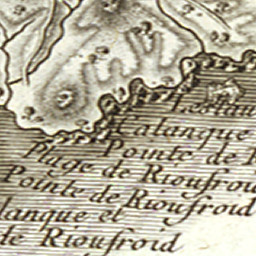 Calanque
Pointe de
Plage de Rioufroid
Pointe de Rioufroid
lanque et
te Rioufroid